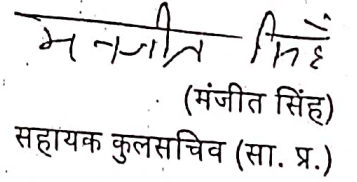 मनजीत सिंह
(मंजीत सिंह)
सहायक कुलसचिव (सा. प्र.)